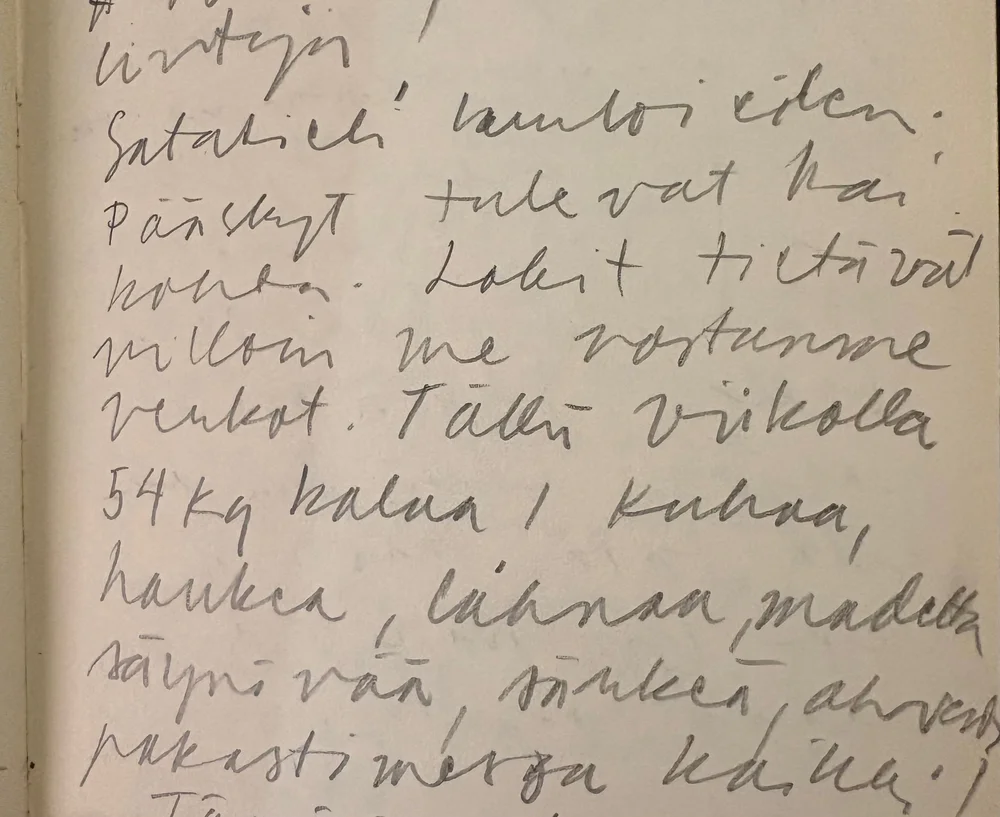 Satakieli kuului eilen.
Pääskyt tulevat kai
kohta. Lokit tietävät
milloin me nostamme
verkot. Tällä viikolla
54 kg kalaa / kuhaa,
haukea, lahnaa, madetta
säynävää, särkeä, ahventa
pakastimessa kaikki!